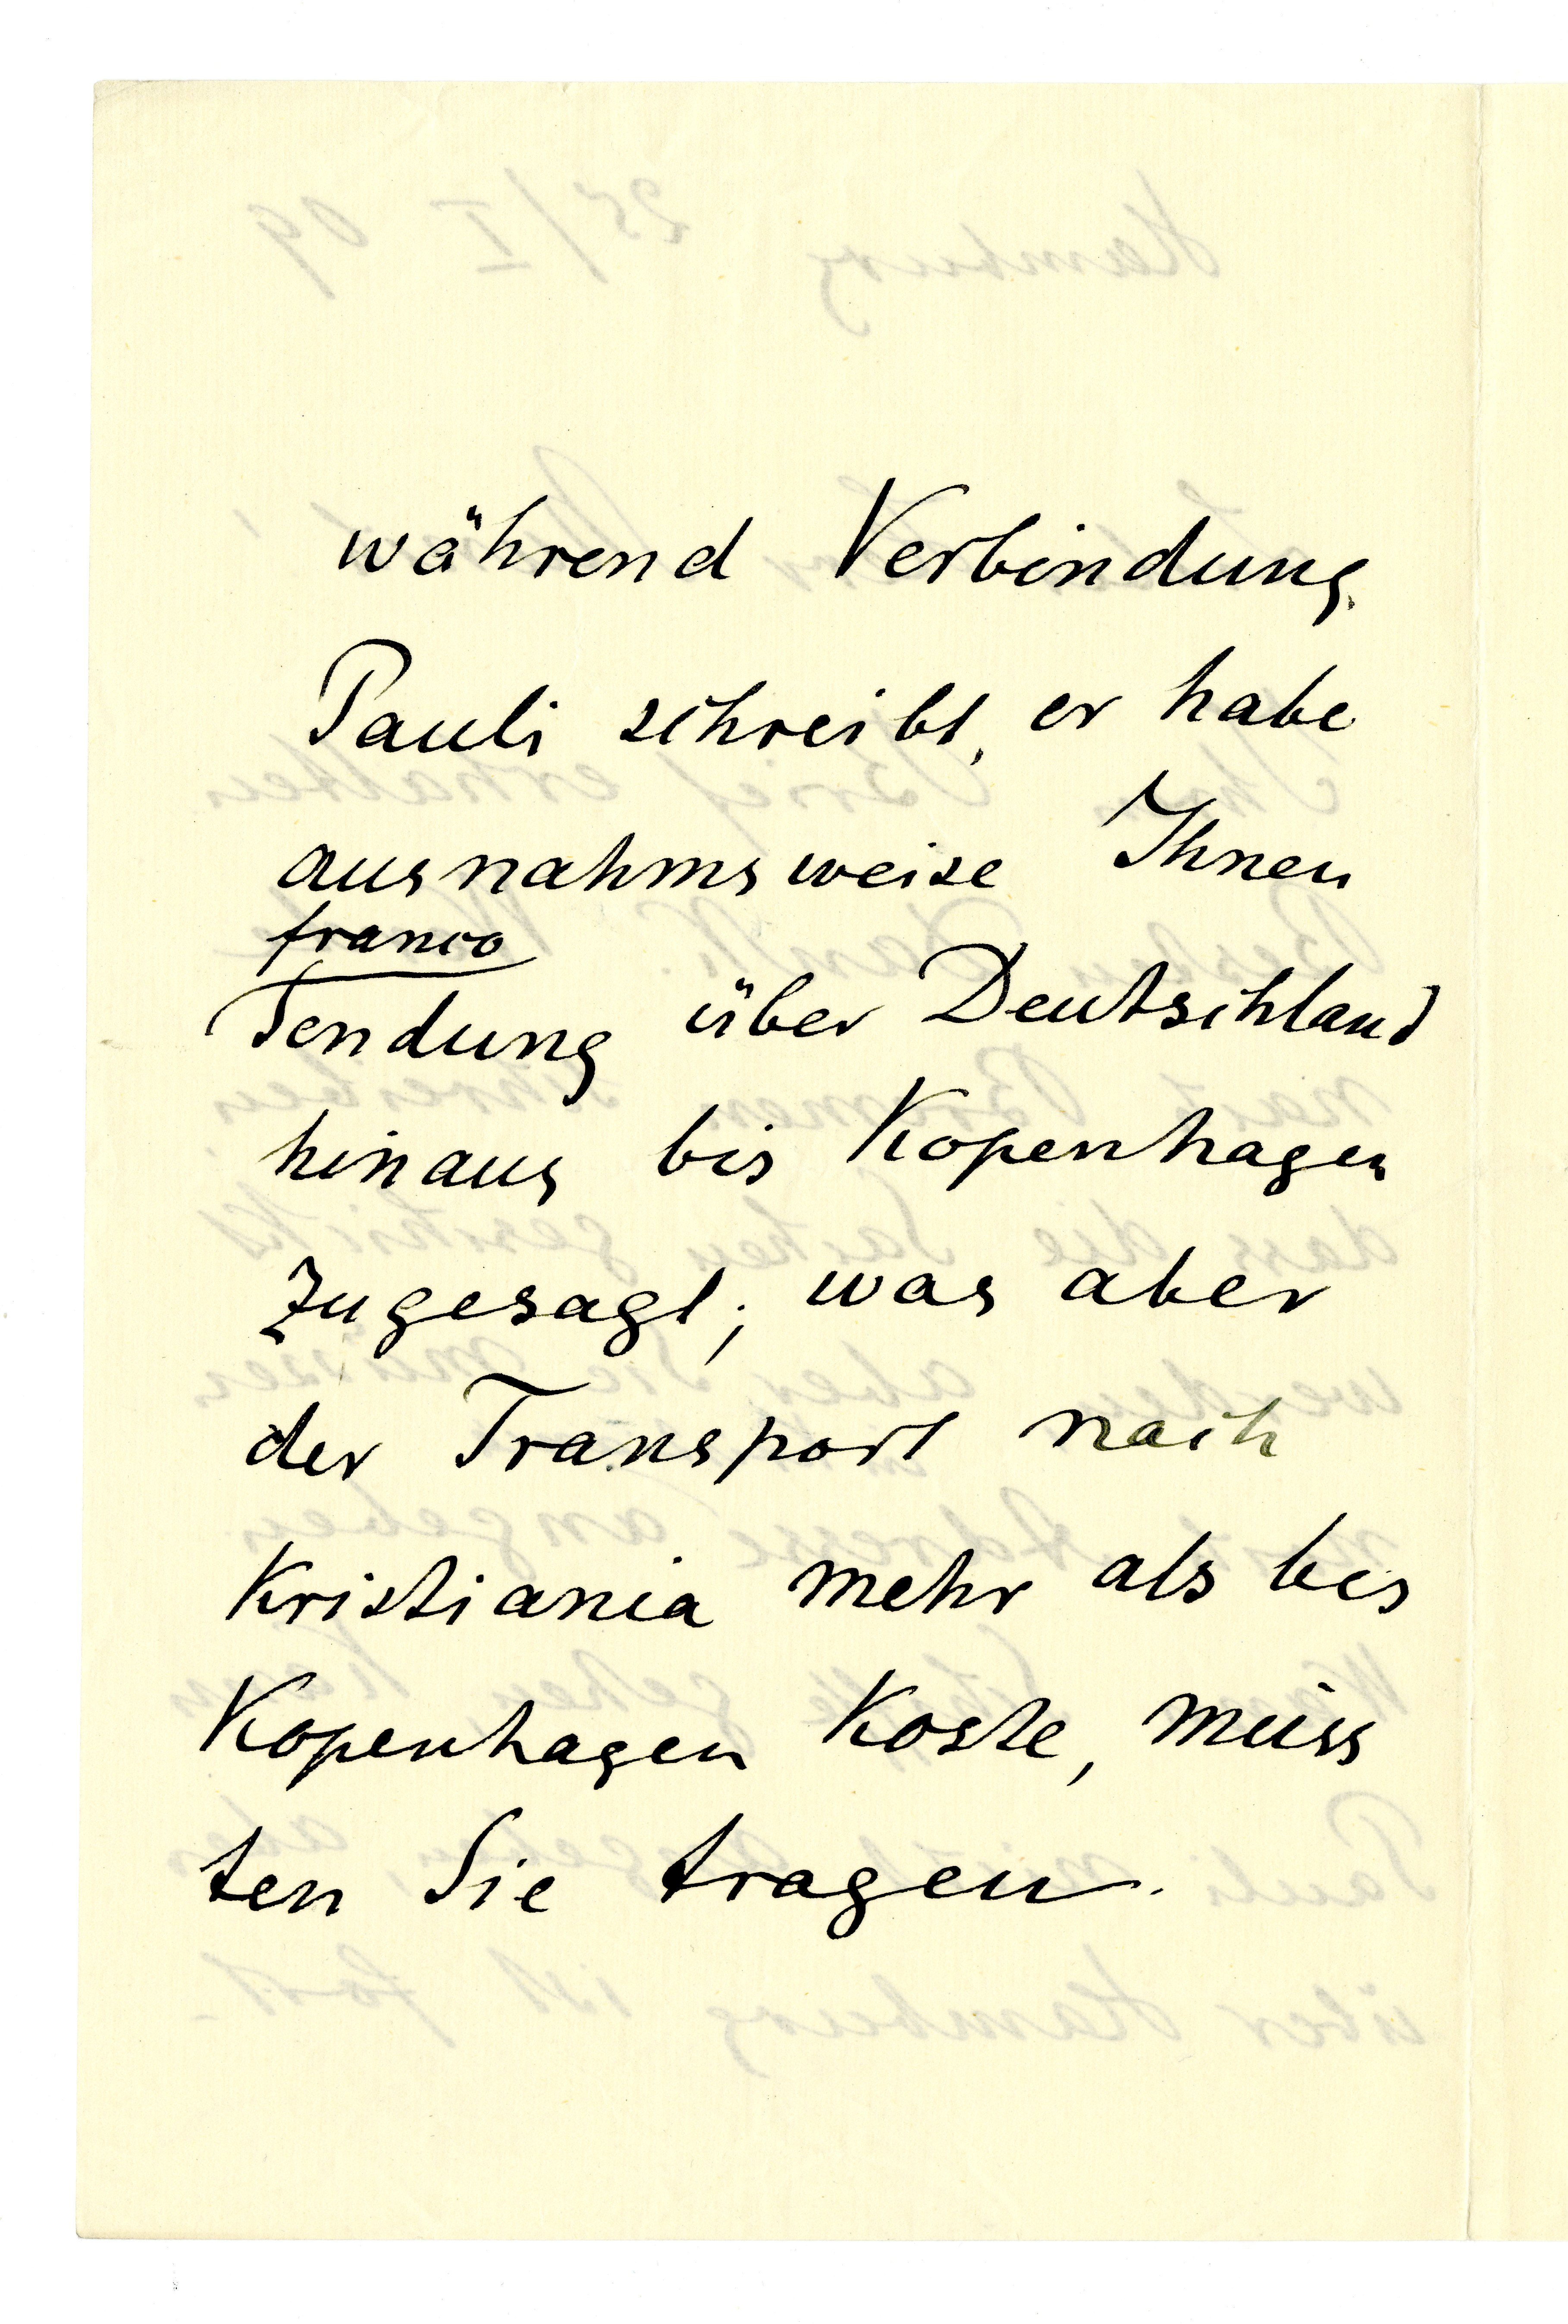 während Verbindung.
Pauli schreibt, er habe
ausnahmsweise Ihnen
franco
Sendung über Deutschland
hinaus bis Kopenhagen
zugesagt, was aber
der Transport nach
Kristiania mehr als bis
Kopenhagen Koste, müss
ten Sie tragen.